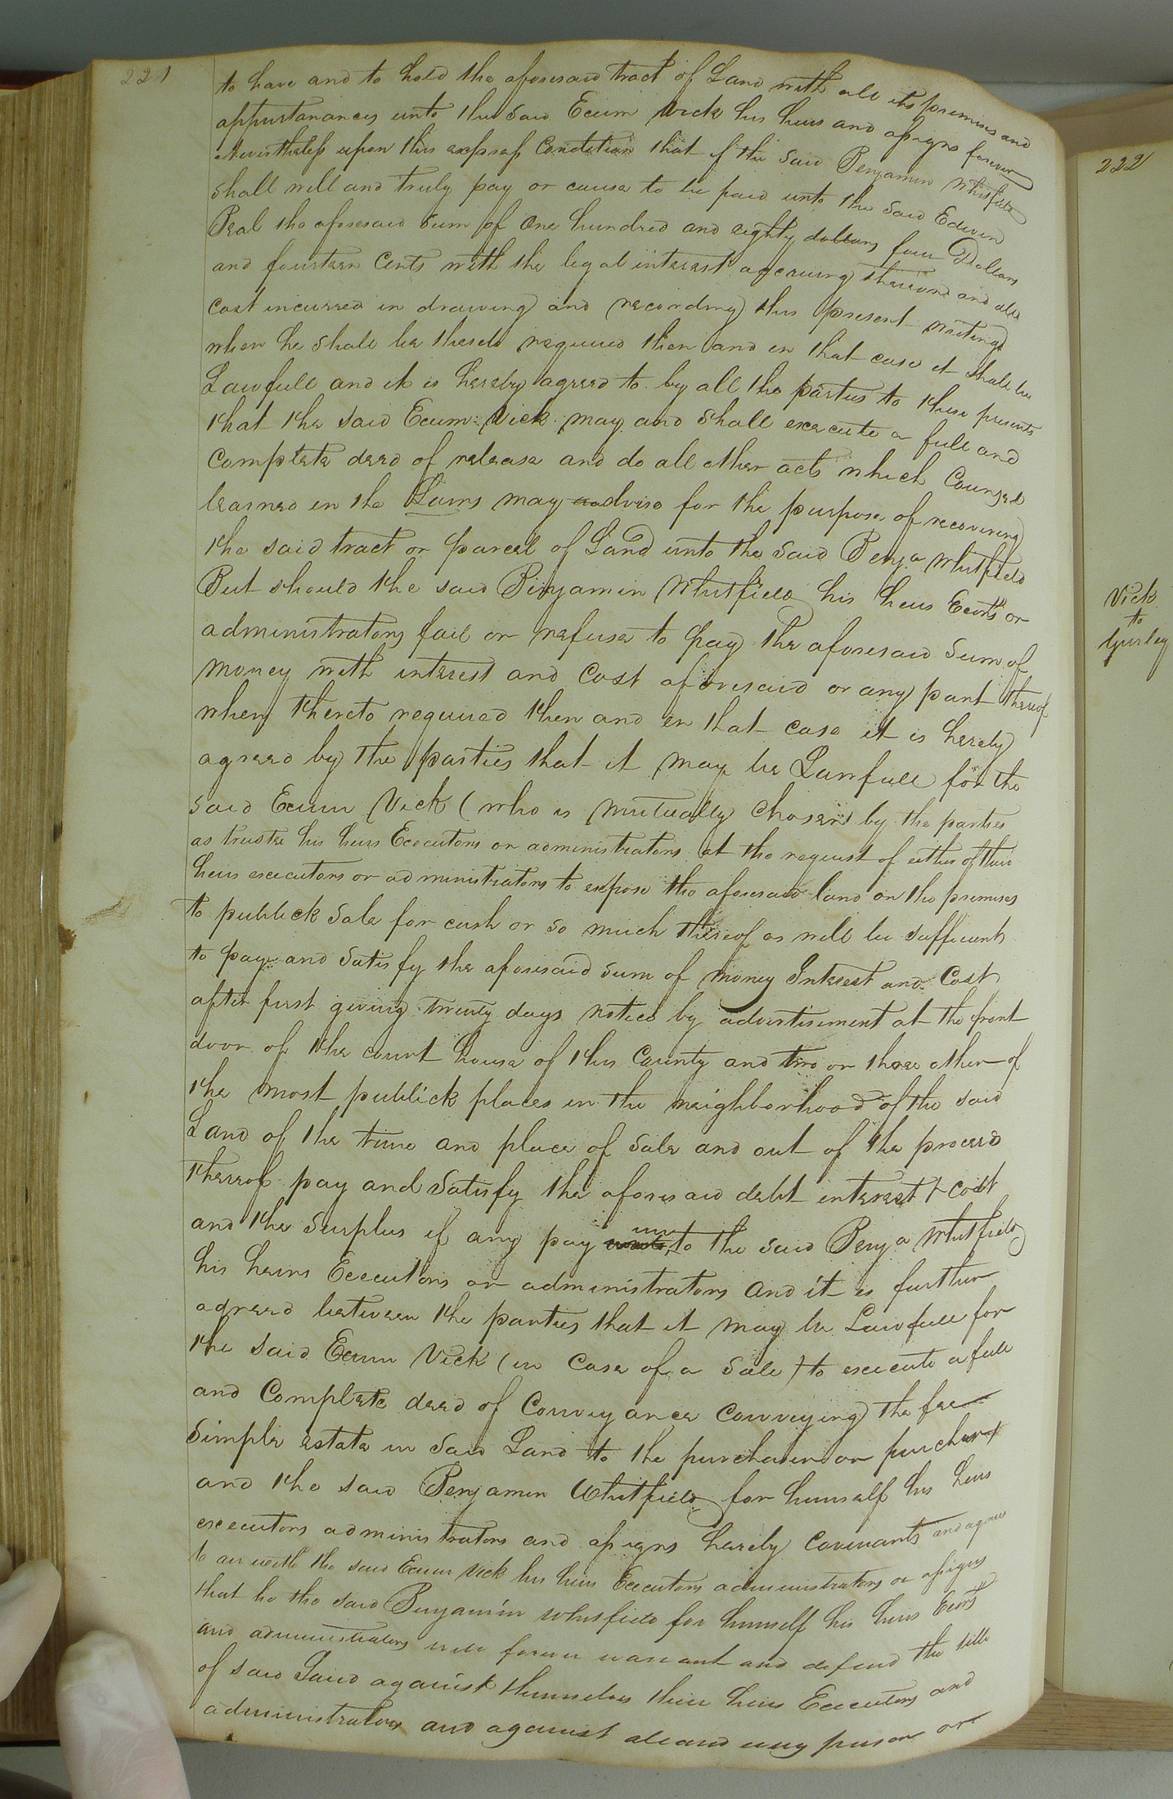 221
to have and to hold the aforesaid tract of Land with all its premises and
appurtanances unto the said Exum Vick his heirs and assigns forever
Nevertheless upon this express Condition that if the said Benjamin Whitfield
shall well and truly pay or cause to be paid unto the said Edwin
Beal the aforesaid sum of One hundred and eighty dollars four Dollars
and fourteen Cents with the legal interest accruing thereon and also
cost incurred in drawing and recording this present writing
when he shall be thereto required then and in that case it shall be
Lawfull and it is hereby agreed to by all the parties to these presents
that the said Exum Vick may and shall execute a full and
complete deed of release and do all other acts which Counsel
learned in the Laws may advise for the purpose of recovering
the said tract or parcel of Land unto the said Benja Whitfield
But should the said Binjamin Whitfield his heirs Exors or
administrators fail or refuse to pay the aforesaid Sum of
money with interest and Cost aforesaid or any part thereof
when thereto required then and in that case it is hereby
agreed by the parties that it may be Lawfull for the
said Exum Vick (who is mutually chosen by the parties
as trustee his heirs Executors or administrators at the request of either of their
heirs executors or administrators to expose the aforesaid land on the premises
to publick sale for cash or so much thereof as will be sufficient
to pay and satisfy the aforesaid sum of money Interest and Cost
after first giving twenty days notice by advertisement at the front
door of the court house of this County and two or three other of
the most publick places in the neighborhood of the said
Land of the time and place of sale and out of the proceeds
thereof pay and satisfy the aforesaid debt interest & cost
and the surplus if any pay unto the said Benja Whitfield
his heirs Executors or administrators and it is further
agreed between the parties that it may be Lawfull for
the said Exum Vick (in case of a sale) to execute a full
and complete deed of conveyance conveying the fee
simple estate in said Land to the purchaser or purchers
and the said Benjamin Whitfield for himself his heirs
executors administrators and assigns hereby covenants and agrees
to an with the said Exum Vick his heirs Executors administrators or assigns
that he the said Benjamin Whitfield for himself his heirs Exors
and administrators will forever warrant and defend the title
of said Land against themselves their heirs Executors and
administrators and against all and any person or
222
Vick
to
Gurley